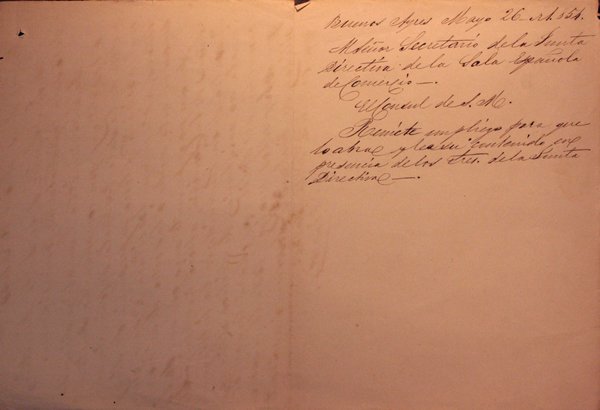 Buenos Ayres Mayo 26 de 1854.
Al Señor Secretario de la Junta
Directiva de la Sala Española
de Comercio—.
El Consul de S. M.
Remite un pliego para que
lo abra y lea su contenido en
presencia de los Sres. de la Junta
Directiva—.